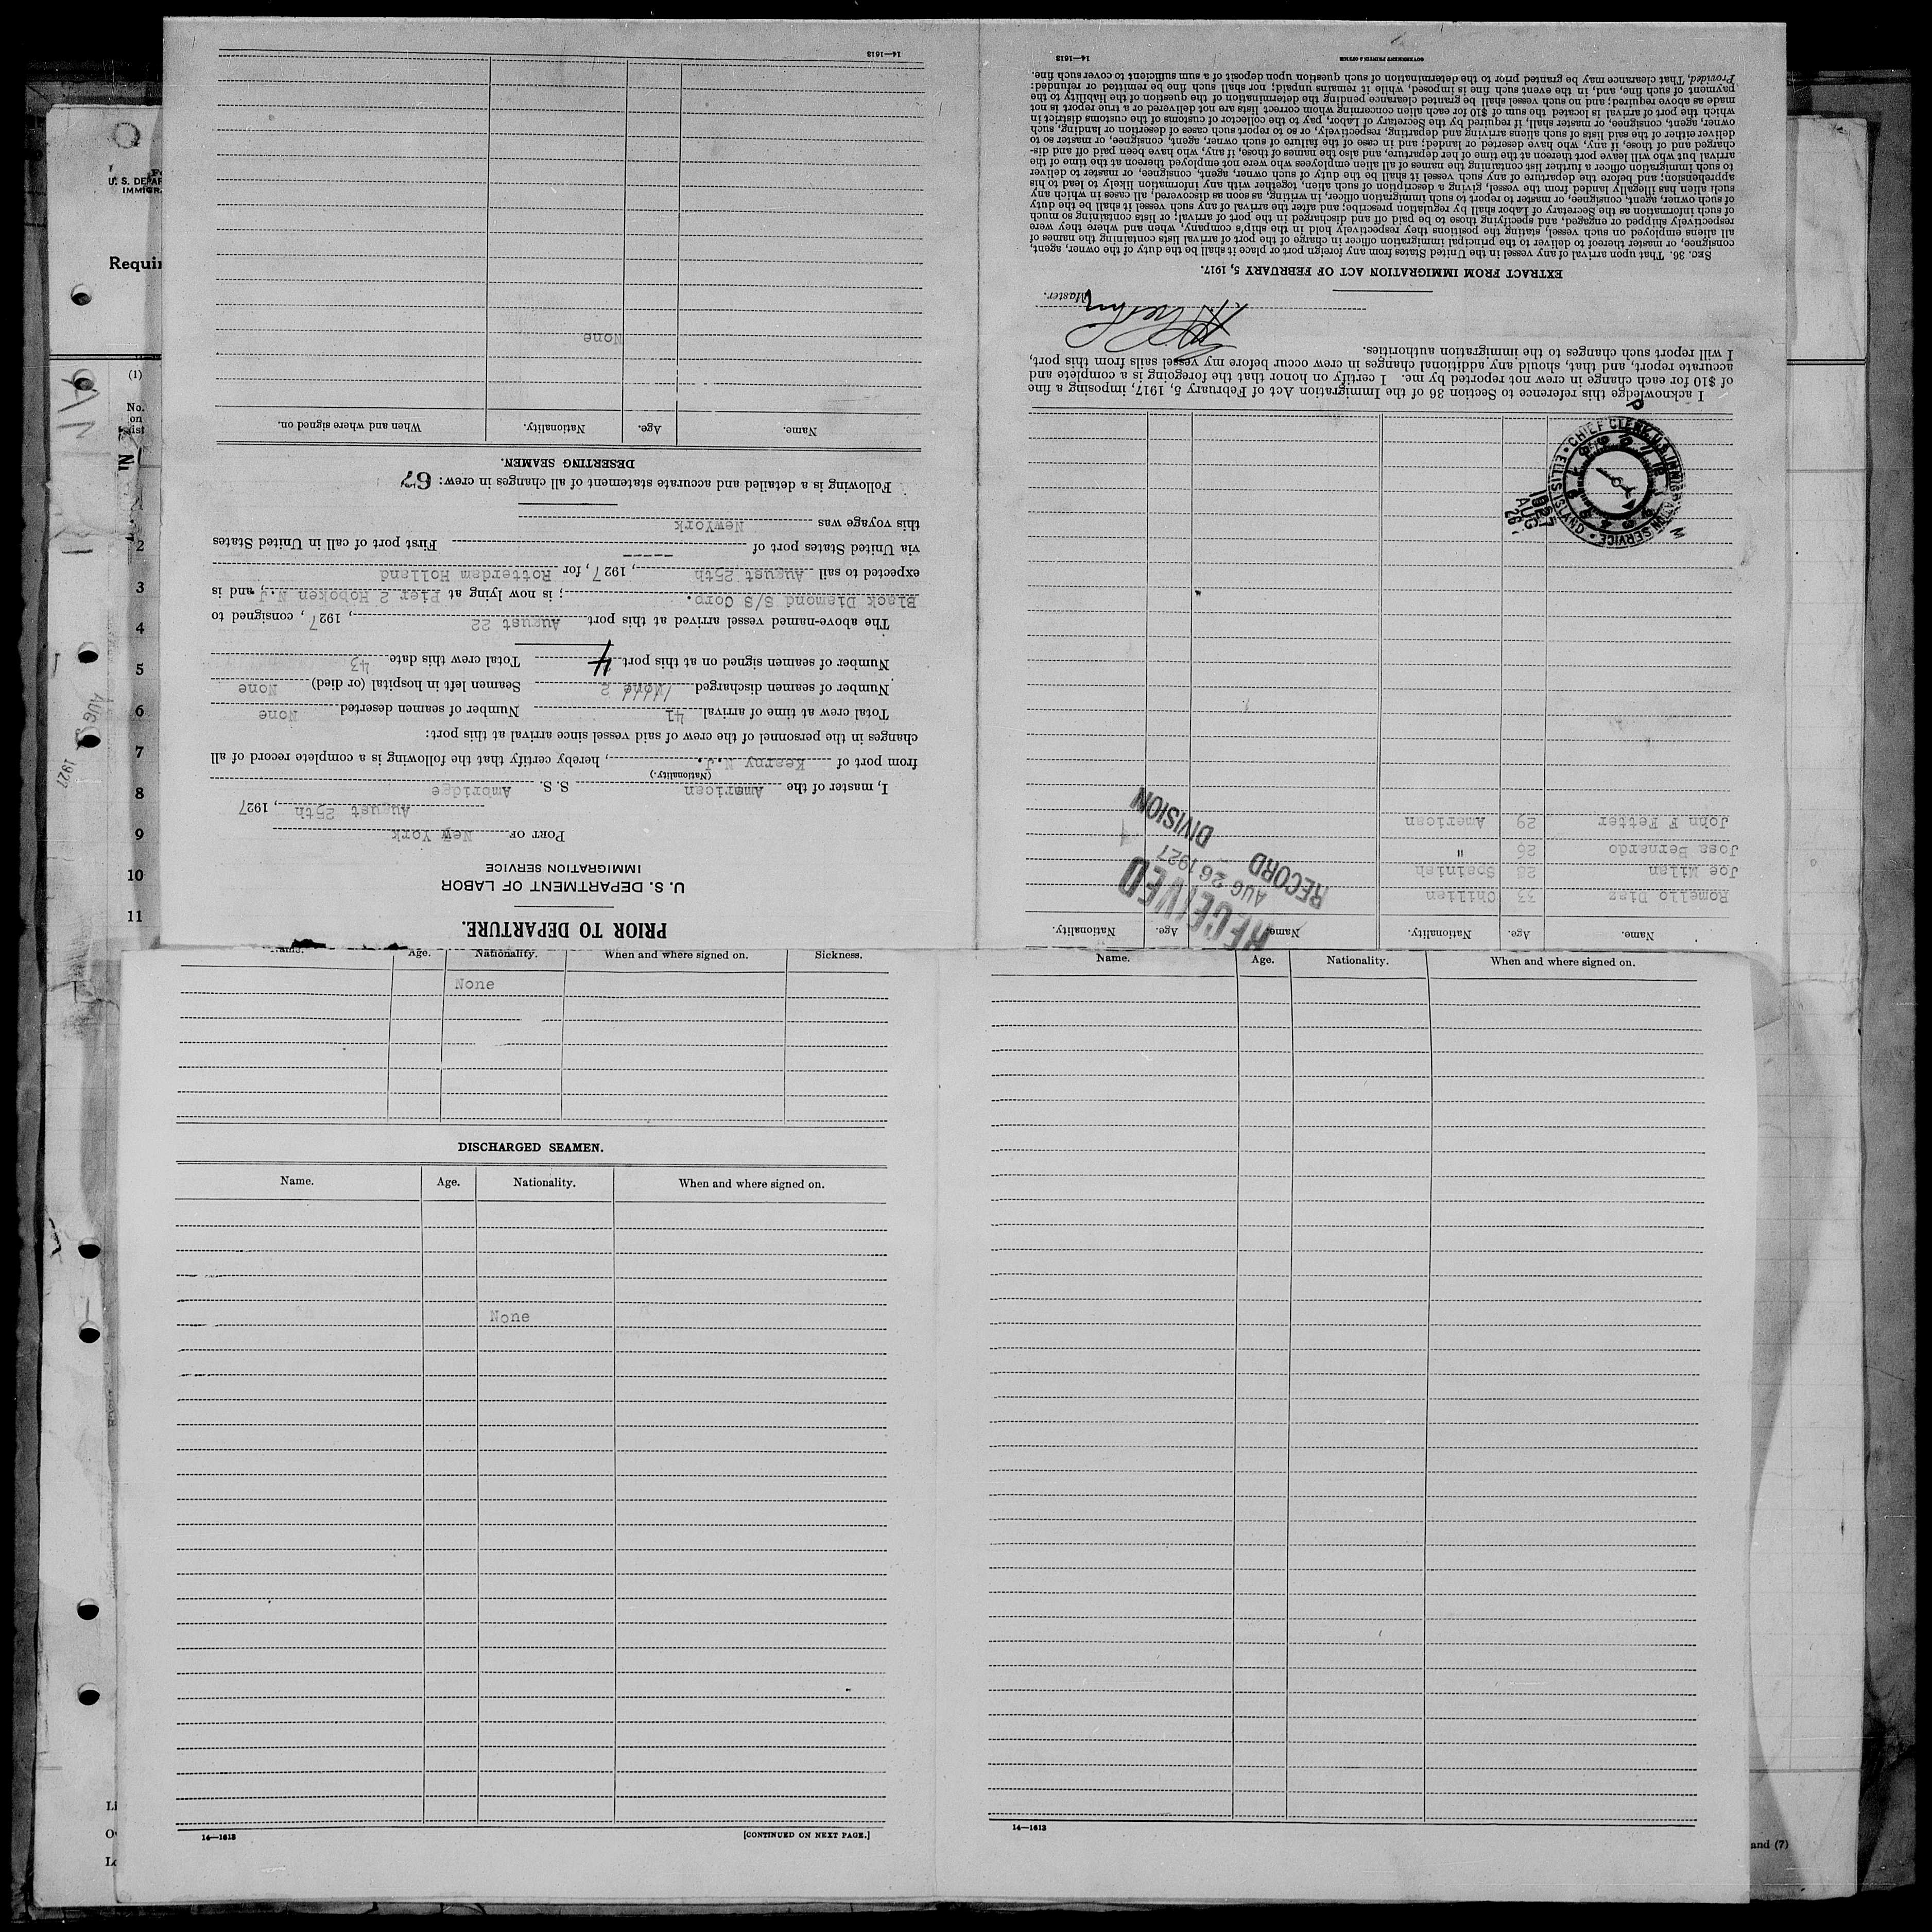 PRIOR TO DEPARTURE.
U. S. DEPARTMENT OF LABOR
IMMIGRATION SERVICE
PORT OF New York
August 25th, 1927
I, master of the American S. S. Ambridge
(Nationality.)
from port of Kearny N.J., hereby certify that the following is a complete record of all
changes in the personnel of the crew of said vessel since arrival at this port:
Total crew at time of arrival 41 Number of seamen deserted None
Number of seamen discharged None 2 Seamen left in hospital (or died) None
Number of seamen signed on at this port 4 Total crew this date 43
The above-named vessel arrived at this port August 22, 1927, consigned to
Black Diamond S/S Corp.; is now lying at Pier 2 Hoboken N.J., and is
expected to sail August 25th, 1927, for Rotterdam Holland
via United States port of ----- First port of call in United States
this voyage was NewYork
Following is a detailed and accurate statement of all changes in crew: 67
DESERTING SEAMEN.
Name. Age. Nationality. When and where signed on.
None
14—1613
Name. Age. Nationality. Name. Age. Nationality.
Romello Diaz 33 Chilian
Joe Milan 28 Spainish
Josa Bernardo 26 "
John F Fetter 29 American
RECEIVED
AUG 26 1927
RECORD
DIVISION
CHIEF CLERK U.S. IMMIGRATION SERVICE • ELLIS ISLAND •
AUG 26
1927
I acknowledge this reference to Section 36 of the Immigration Act of February 5, 1917, imposing a fine
of $10 for each change in crew not reported by me. I certify on honor that the foregoing is a complete and
accurate report, and that, should any additional changes in crew occur before my vessel sails from this port,
I will report such changes to the immigration authorities.
Master.
EXTRACT FROM IMMIGRATION ACT OF FEBRUARY 5, 1917.
SEC. 36. That upon arrival of any vessel in the United States from any foreign port or place it shall be the duty of the owner, agent,
consignee, or master thereof to deliver to the principal immigration officer in charge of the port of arrival lists containing the names of
all aliens employed on such vessel, stating the positions they respectively hold in the ship's company, when and where they were
respectively shipped or engaged, and specifying those to be paid off and discharged in the port of arrival; or lists containing so much
of such information as the Secretary of Labor shall by regulation prescribe; and after the arrival of any such vessel it shall be the duty
of such owner, agent, consignee, or master to report to such immigration officer, in writing, as soon as discovered, all cases in which any
such alien has illegally landed from the vessel, giving a description of such alien, together with any information likely to lead to his
apprehension; and before the departure of any such vessel it shall be the duty of such owner, agent, consignee, or master to deliver
to such immigration officer a further list containing the names of all alien employees who were not employed thereon at the time of the
arrival but who will leave port thereon at the time of her departure, and also the names of those, if any, who have been paid off and dis-
charged and of those, if any, who have deserted or landed; and in case of the failure of such owner, agent, consignee, or master so to
deliver either of the said lists of such aliens arriving and departing, respectively, or so to report such cases of desertion or landing, such
owner, agent, consignee, or master shall, if required by the Secretary of Labor, pay to the collector of customs of the customs district in
which the port of arrival is located the sum of $10 for each alien concerning whom correct lists are not delivered or a true report is not
made as above required; and no such vessel shall be granted clearance pending the determination of the question of the liability to the
payment of such fine, and, in the event such fine is imposed, while it remains unpaid; nor shall such fine be remitted or refunded:
Provided, That clearance may be granted prior to the determination of such question upon deposit of a sum sufficient to cover such fine.
14—1613 GOVERNMENT PRINTING OFFICE
U. S. DEPAR
IMMIGR
Requir
(1)
No.
on
list
2
3
4
5
6
7
8
9
10
11
AUG
1927
Name. Age. Nationality. When and where signed on. Sickness.
None
DISCHARGED SEAMEN.
Name. Age. Nationality. When and where signed on.
None
14—1613 [CONTINUED ON NEXT PAGE.]
Name. Age. Nationality. When and where signed on.
14—1613
and (7)